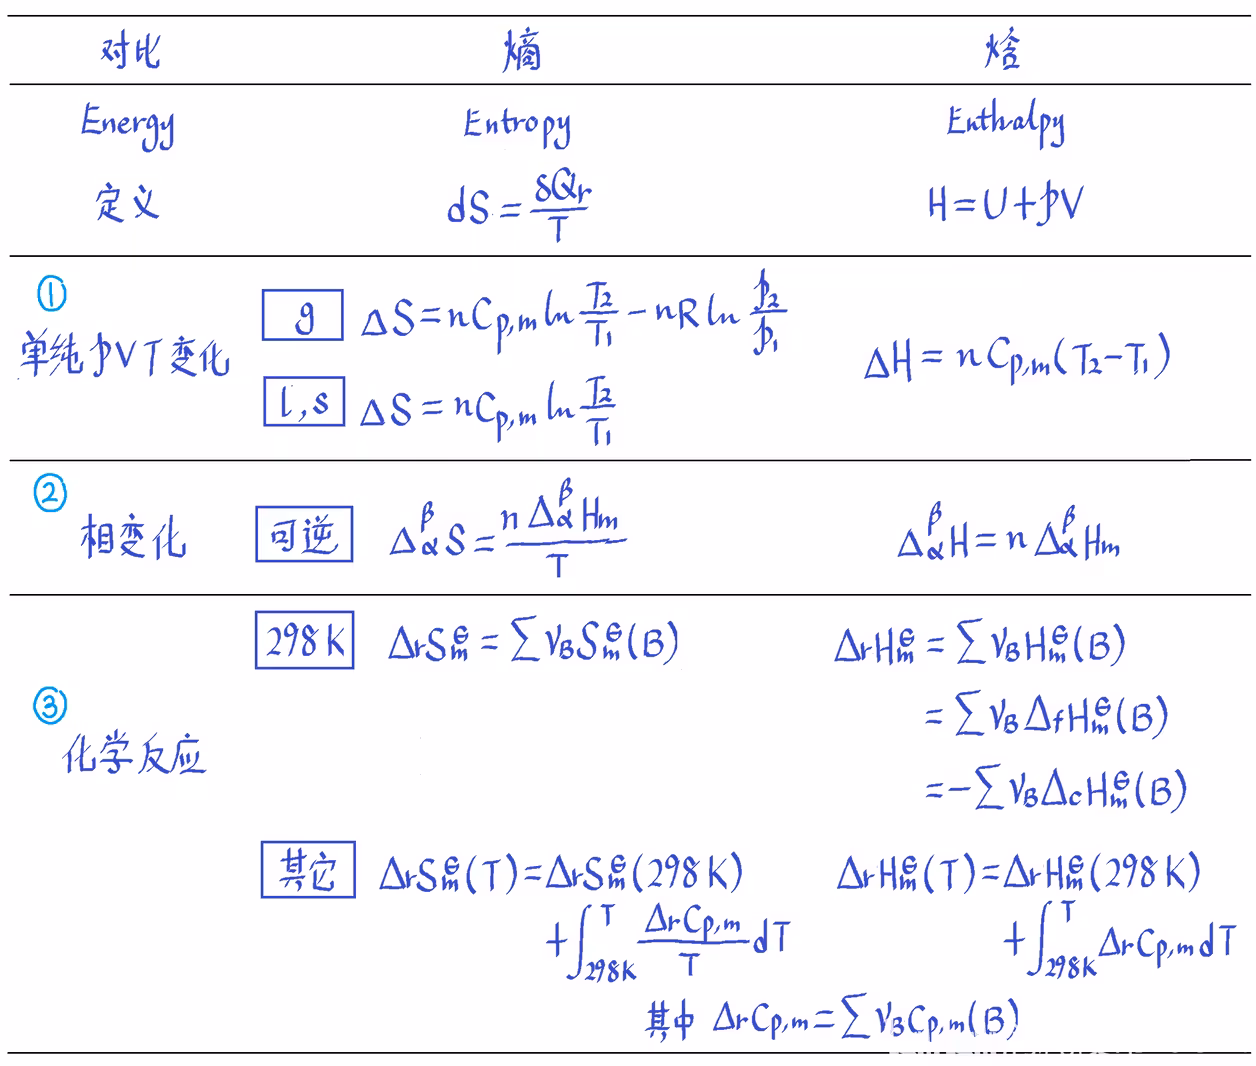 对比 熵 焓
Energy Entropy Enthalpy
定义 dS = δQr/T H = U + pV
①
单纯pVT变化
g ΔS = nCp,m ln T₂/T₁ − nR ln p₂/p₁
l,s ΔS = nCp,m ln T₂/T₁
ΔH = nCp,m(T₂−T₁)
②
相变化 可逆 Δ_α^β S = n Δ_α^β Hm / T Δ_α^β H = n Δ_α^β Hm
③
化学反应
298K ΔrS_m^θ = ∑ν_B S_m^θ(B) ΔrH_m^θ = ∑ν_B H_m^θ(B)
= ∑ν_B ΔfH_m^θ(B)
= −∑ν_B ΔcH_m^θ(B)
其它 ΔrS_m^θ(T) = ΔrS_m^θ(298K) ΔrH_m^θ(T) = ΔrH_m^θ(298K)
+ ∫_298K^T ΔrCp,m/T dT + ∫_298K^T ΔrCp,m dT
其中 ΔrCp,m = ∑ν_B Cp,m(B)